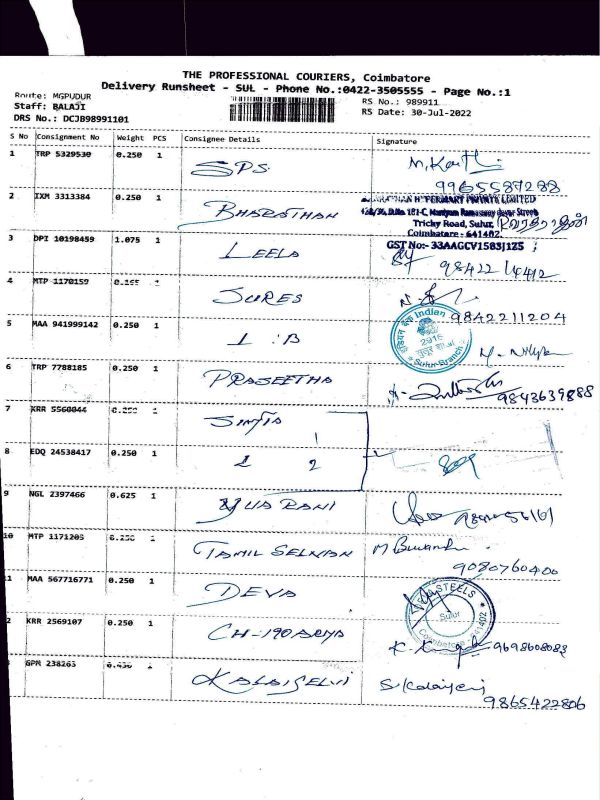 THE PROFESSIONAL COURIERS, Coimbatore
Delivery Runsheet - SUL - Phone No.:0422-3505555 - Page No.:1
Route: MGPUDUR
Staff: BALAJI
DRS No.: DCJB98991101
RS No.: 989911
RS Date: 30-Jul-2022
S No Consignment No Weight PCS Consignee Details Signature
1 TRP 5329530 0.250 1 SPS. M.Karthi
9965587288
2 IXM 3313384 0.250 1 BHARATHAN
HYPERMART PRIVATE LIMITED
Tricky Road, Sulur,
Coimbatore - 641402.
GST No:- 33AAGCV1503J1Z5
3 DPI 10198459 1.075 1 LEELA
98422 14412
4 MTP 1170159 1 SURES
9842211204
5 MAA 941999142 0.250 1 I.B
Indian
2916
Sulur Branch
6 TRP 7788185 0.250 1 PRASEETHA
9843639888
7 KRR 5560044 1
1
8 EDQ 24538417 0.250 1 2 2
9 NGL 2397466 0.625 1 RANI
10 MTP 1171203 0.250 1 TAMIL SELVIAN
9080760400
11 MAA 567716771 0.250 1 DEVA
STEELS
Sulur
Coimbatore 641402
2 KRR 2569107 0.250 1
9698608083
GPM 238263 0.430 1 KALAISELVI S.Kalaiselvi
9865422806